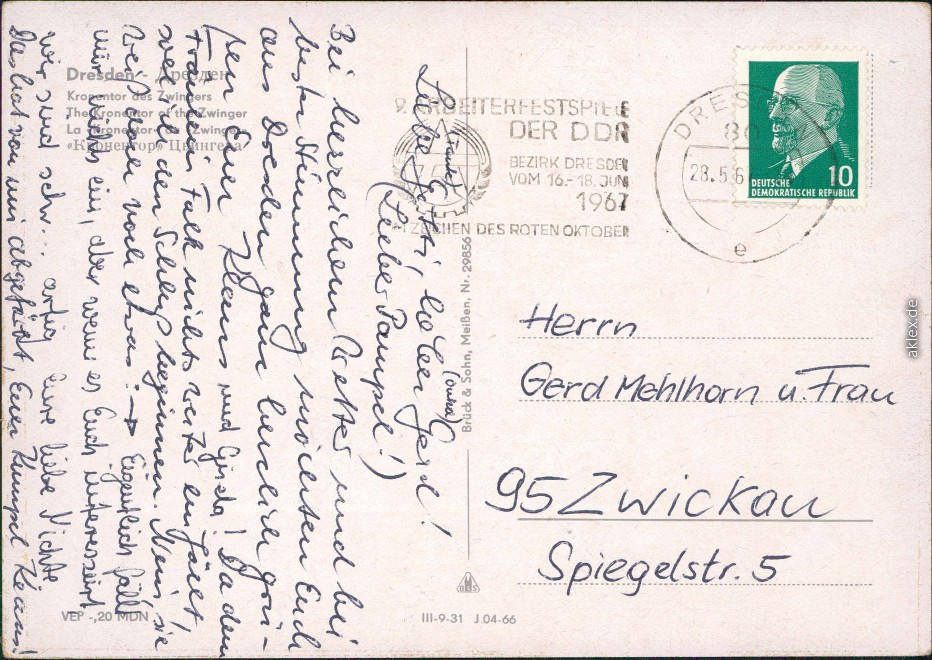 Dresden - Дрезден
Kronentor des Zwingers
The Kronentor of the Zwinger
La Kronentor du Zwinger
«Кронентор» Цвингера
9. ARBEITERFESTSPIELE
DER DDR
BEZIRK DRESDEN
VOM 16.-18. JUNI
1967
IM ZEICHEN DES ROTEN OKTOBER
DRESDEN
80
28.5.67
e
DEUTSCHE
DEMOKRATISCHE REPUBLIK
10
Liebe Gotti, lieber (Onkel) Gerd!
(Lieber Pampel!)
Bei herzlichem Wetter und bei
bester Stimmung möchten Euch
aus Dresden ganz herzlich grü-
ßen Eure Klaus und Gisela! Da dem
Fräulein Falk nichts weiter einfällt,
will ich den Schluß beginnen. Nein, sie
will doch noch etwas: → Eigentlich fällt
mir nichts ein, aber wenn es Euch interessiert
wir sind sehr... artig Eure liebe Nichte
Das hat von mir abgefärbt, Euer Kumpel Klaus!
Brück & Sohn, Meißen, Nr. 29856
Herrn
Gerd Mehlhorn u. Frau
95 Zwickau
Spiegelstr. 5
VEP -,20 MDN
III-9-31 J.04-66
aklex.de